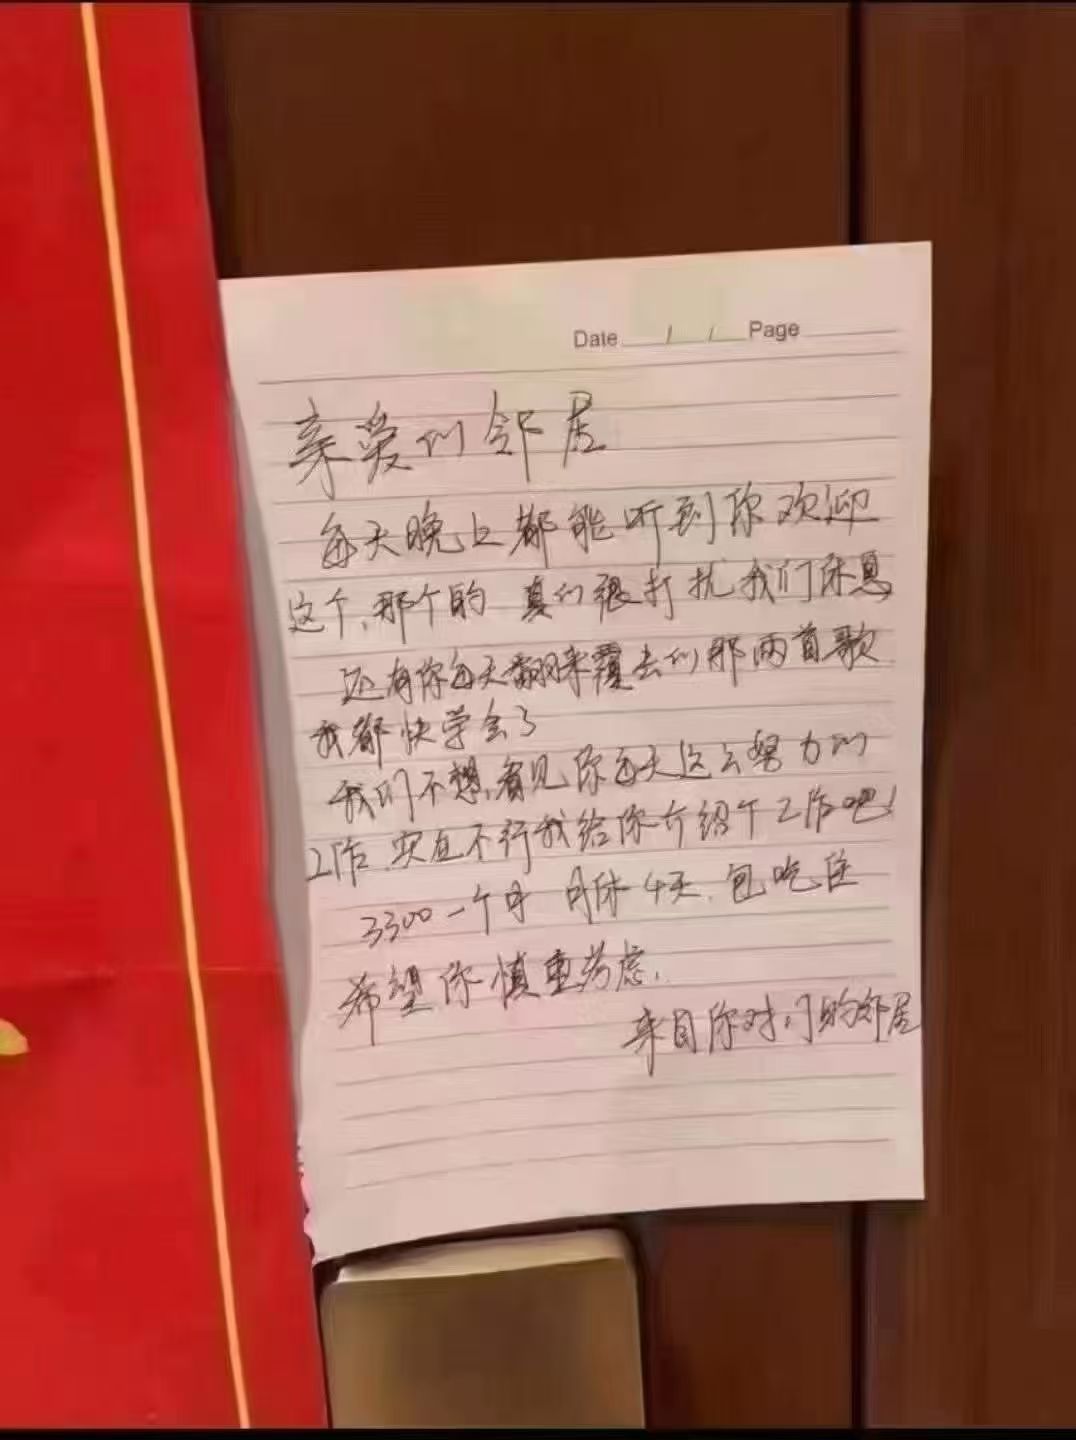 Date / / Page
亲爱的邻居
每天晚上都能听到你欢迎
这个、那个的 真的很打扰我们休息
还有你每天翻来覆去的那两首歌
我都快学会了
我们不想看见你每天这么努力的
工作.实在不行我给你介绍个工作吧!
3300一个月 月休4天.包吃住
希望你慎重考虑.
来自你对门的邻居